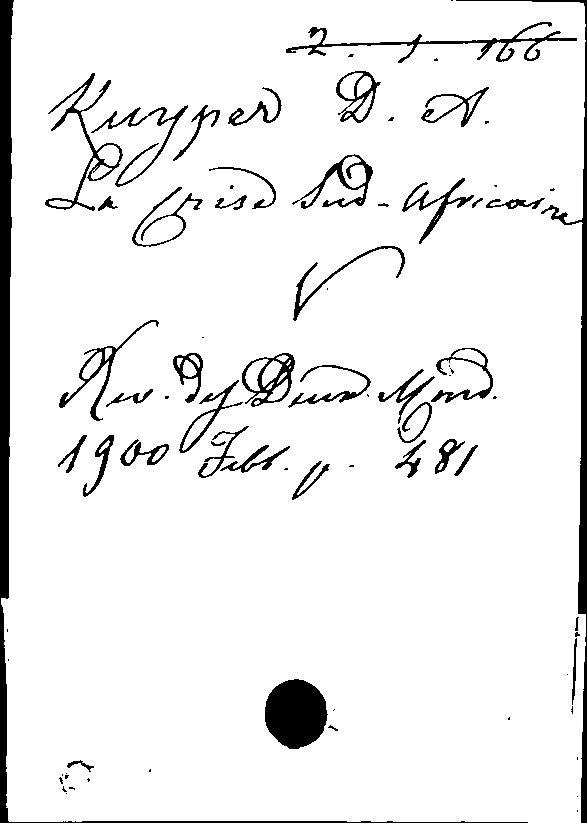 2. 1. 166
Kuyper D. A.
La Crise Sud-Africaine
V
Rev. des Deux Mond.
1900 Febr. p. 481